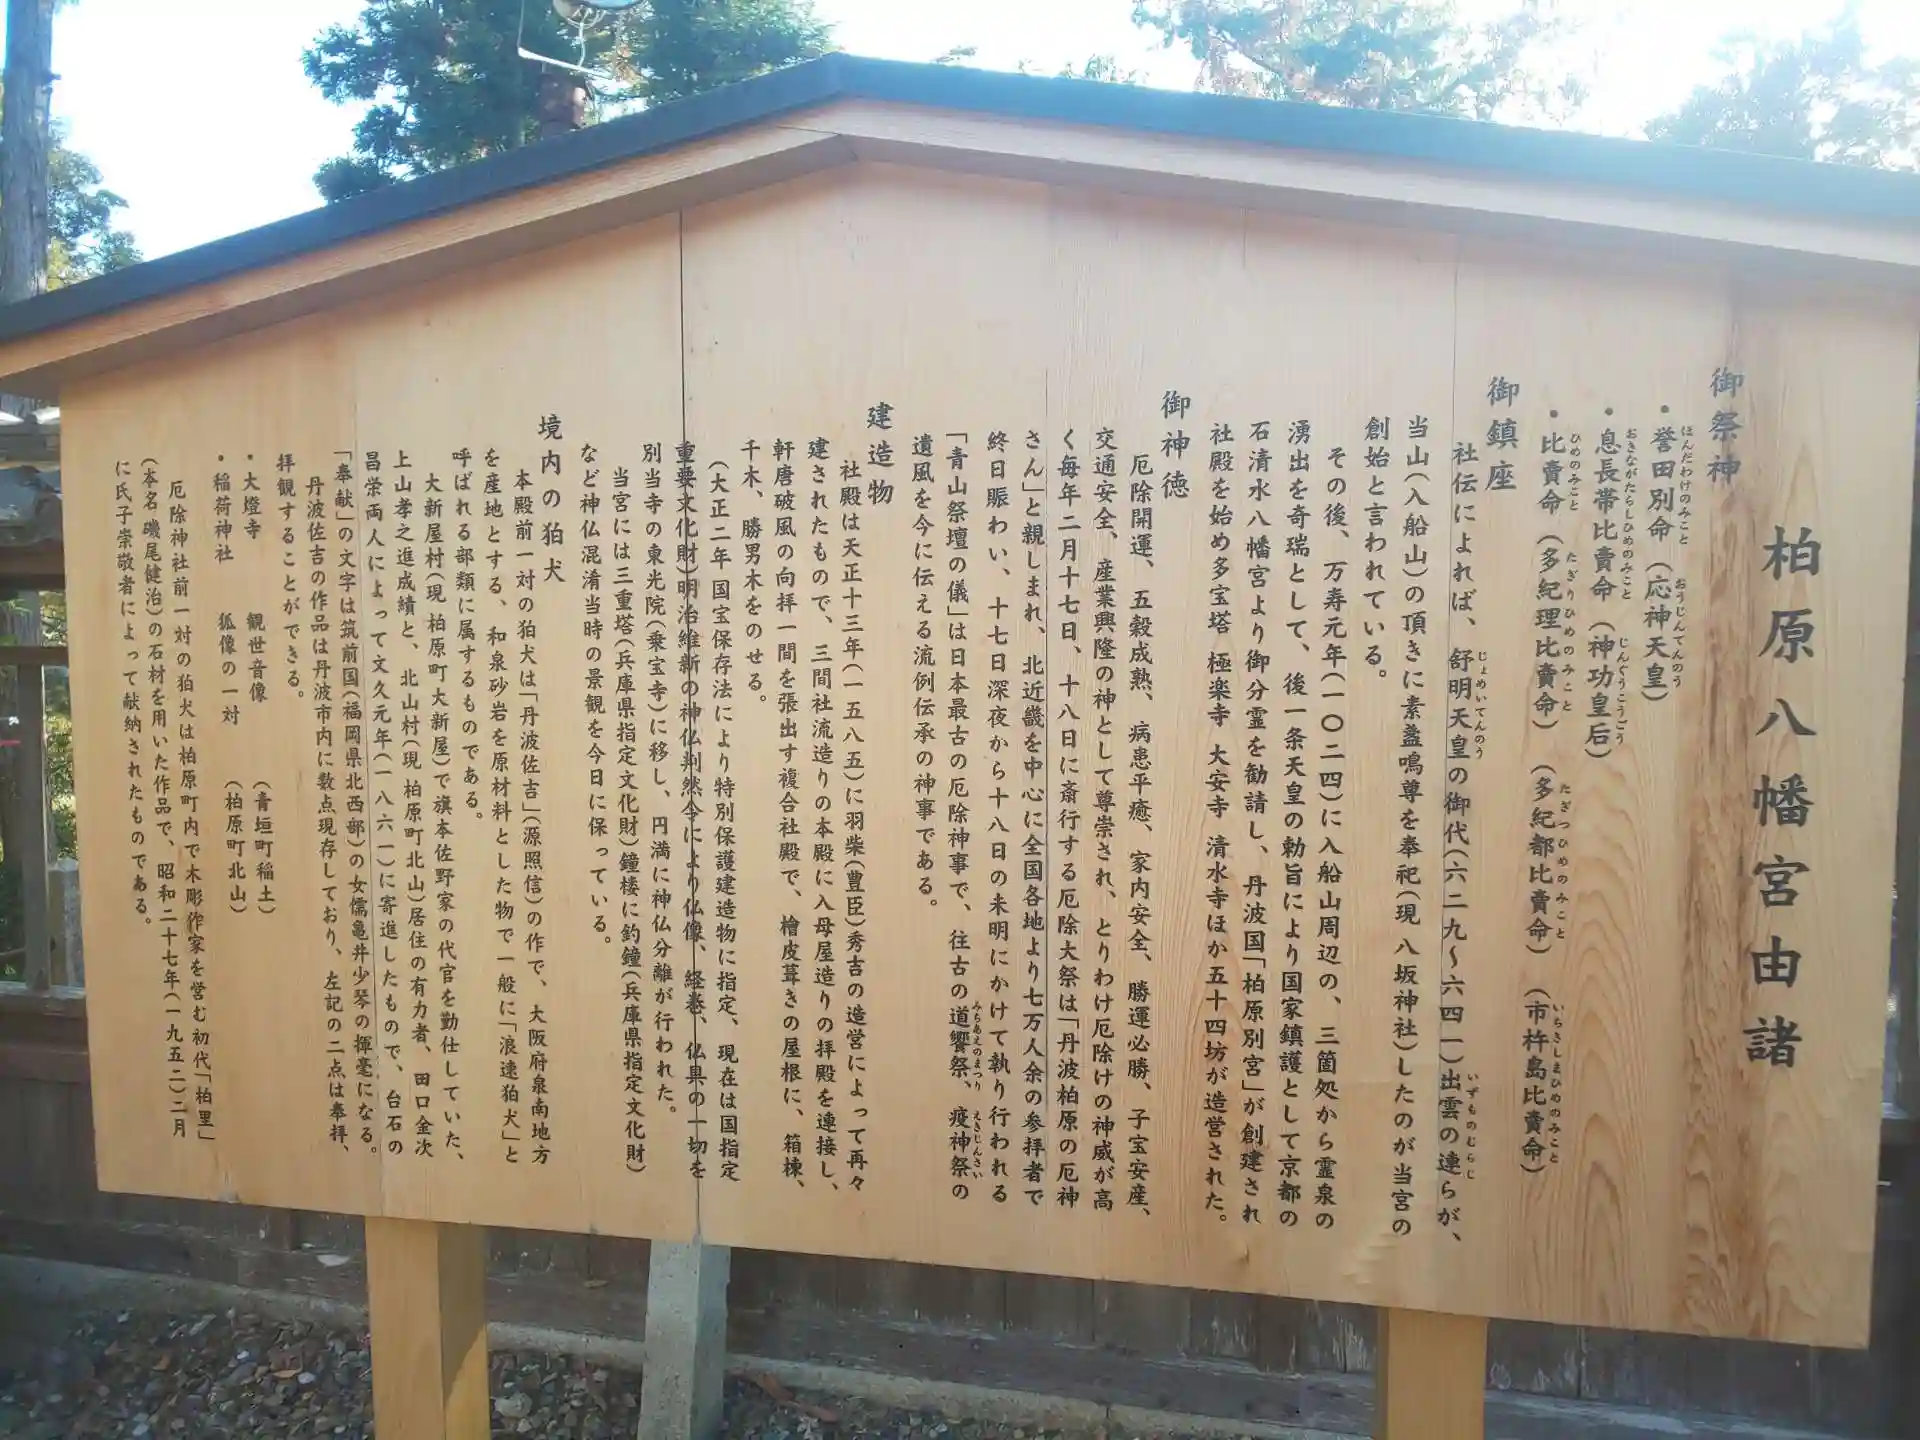 柏原八幡宮由緒
御祭神
・誉田別命（応神天皇）
・息長帯比賣命（神功皇后）
・比賣命（多紀理比賣命）（多紀都比賣命）（市杵島比賣命）
御鎮座
社伝によれば、舒明天皇の御代(六二九〜六四一)出雲の連らが、
当山(入船山)の頂きに素盞鳴尊を奉祀(現 八坂神社)したのが当宮の
創始と言われている。
その後、万寿元年(一〇二四)に入船山周辺の、三箇処から霊泉の
湧出を奇瑞として、後一条天皇の勅旨により国家鎮護として京都の
石清水八幡宮より御分霊を勧請し、丹波国「柏原別宮」が創建され
社殿を始め多宝塔 極楽寺 大安寺 清水寺ほか五十四坊が造営された。
御神徳
厄除開運、五穀成熟、病患平癒、家内安全、勝運必勝、子宝安産、
交通安全、産業興隆の神として尊崇され、とりわけ厄除けの神威が高
く毎年二月十七日、十八日に斎行する厄除大祭は「丹波柏原の厄神
さん」と親しまれ、北近畿を中心に全国各地より七万人余の参拝者で
終日賑わい、十七日深夜から十八日の未明にかけて執り行われる
「青山祭壇の儀」は日本最古の厄除神事で、往古の道饗祭、疫神祭の
遺風を今に伝える流例伝承の神事である。
建造物
社殿は天正十三年(一五八五)に羽柴(豊臣)秀吉の造営によって再々
建されたもので、三間社流造りの本殿に入母屋造りの拝殿を連接し、
軒唐破風の向拝一間を張出す複合社殿で、檜皮葺きの屋根に、箱棟、
千木、勝男木をのせる。
(大正二年 国宝保存法により特別保護建造物に指定、現在は国指定
重要文化財)明治維新の神仏判然令により仏像、経巻、仏具の一切を
別当寺の東光院(乗宝寺)に移し、円満に神仏分離が行われた。
当宮には三重塔(兵庫県指定文化財)鐘楼に釣鐘(兵庫県指定文化財)
など神仏混淆当時の景観を今日に保っている。
境内の狛犬
本殿前一対の狛犬は「丹波佐吉」(源照信)の作で、大阪府泉南地方
を産地とする、和泉砂岩を原材料とした物で一般に「浪速狛犬」と
呼ばれる部類に属するものである。
大新屋村(現 柏原町大新屋)で旗本佐野家の代官を勤仕していた、
上山孝之進成績と、北山村(現 柏原町北山)居住の有力者、田口金次
昌栄両人によって文久元年(一八六一)に寄進したもので、台石の
「奉献」の文字は筑前国(福岡県北西部)の女儒亀井少琴の揮毫になる。
丹波佐吉の作品は丹波市内に数点現存しており、左記の二点は奉拝、
拝観することができる。
・大燈寺 観世音像 (青垣町稲土)
・稲荷神社 狐像の一対 (柏原町北山)
厄除神社前一対の狛犬は柏原町内で木彫作家を営む初代「柏里」
(本名 磯尾健治)の石材を用いた作品で、昭和二十七年(一九五二)二月
に氏子崇敬者によって献納されたものである。